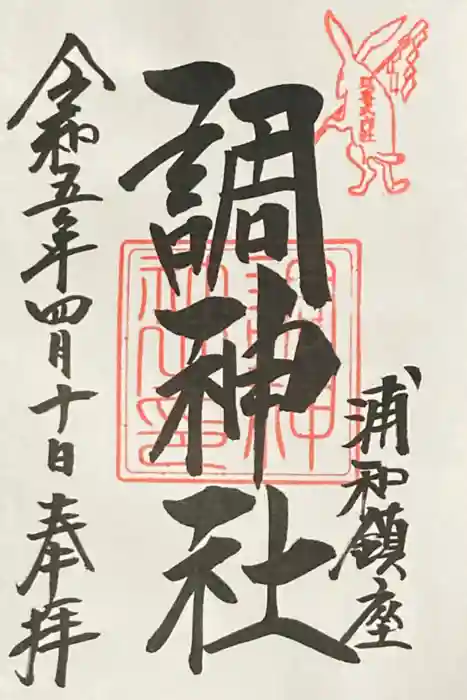 浦和鎮座
調神社
令和五年四月十日奉拝